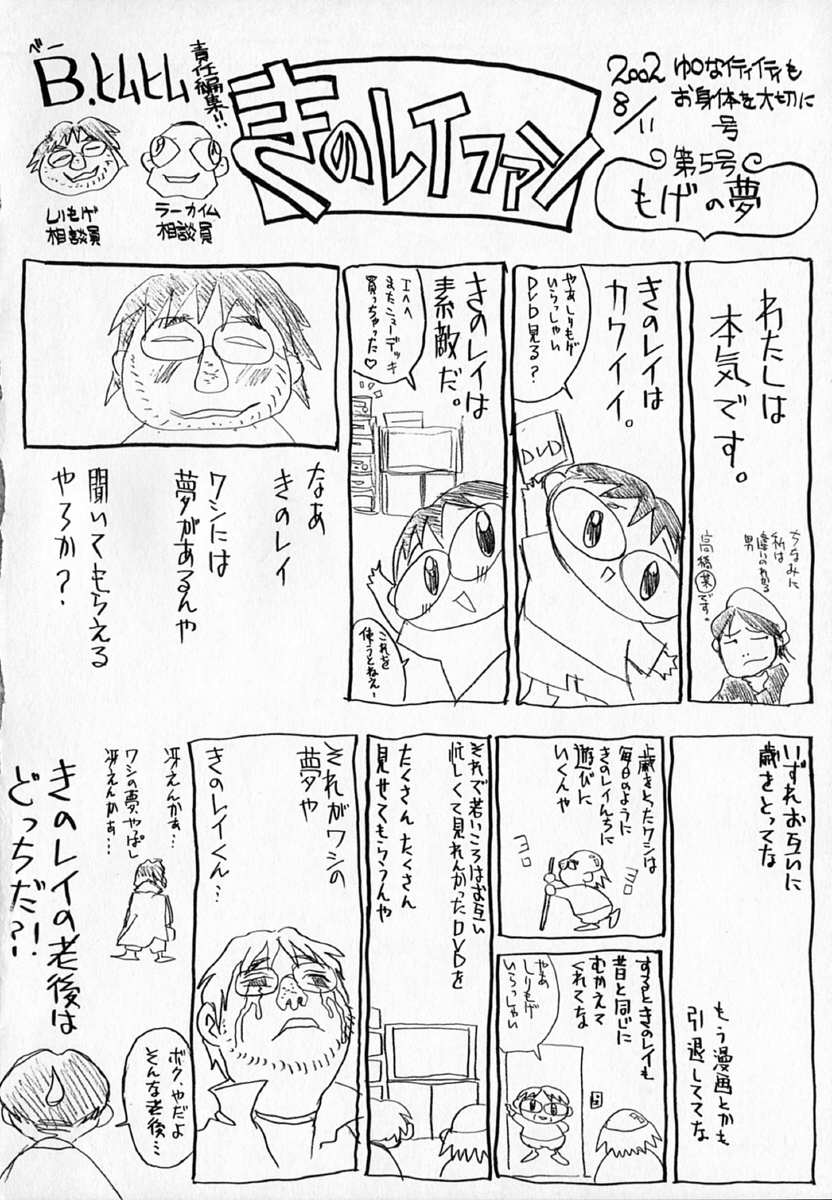 ベー
B.ヒムヒム
責任編集!!
しりもげ
相談員
ラーカイム
相談員
きのレイファン
2002
8/11
ゆのなイティイティも
お身体を大切に
号
第5号
もげの夢
わたしは
本気です。
ちなみに
私は
違いのわかる
男
高橋葉です。
きのレイは
カワイイ。
やあしりもげ
いらっしゃい
DVD見る?
DVD
きのレイは
素敵だ。
エヘヘ
またニューデッキ
買っちゃった♡
これを
使うとねえー
なあ
きのレイ
ワシには
夢があるんや
聞いてもらえる
やろか?
いずれお互いに
歳をとってな
もう漫画とかも
引退しててな
歳をとったワシは
毎日のように
きのレイんちに
遊びに
いくんや
ヨロ
ヨロ
するときのレイも
昔と同じに
むかえて
くれてな
やあ
しりもげ
いらっしゃい
それで若いころはお互い
忙しくて見れんかったDVDを
たくさんたくさん
見せてもらうんや
それがワシの
夢や
きのレイくん…
冴えんかぁ…
ワシの夢やっぱし
冴えんかぁ…
きのレイの老後は
どっちだ?!
ボク、やだよ
そんな老後…